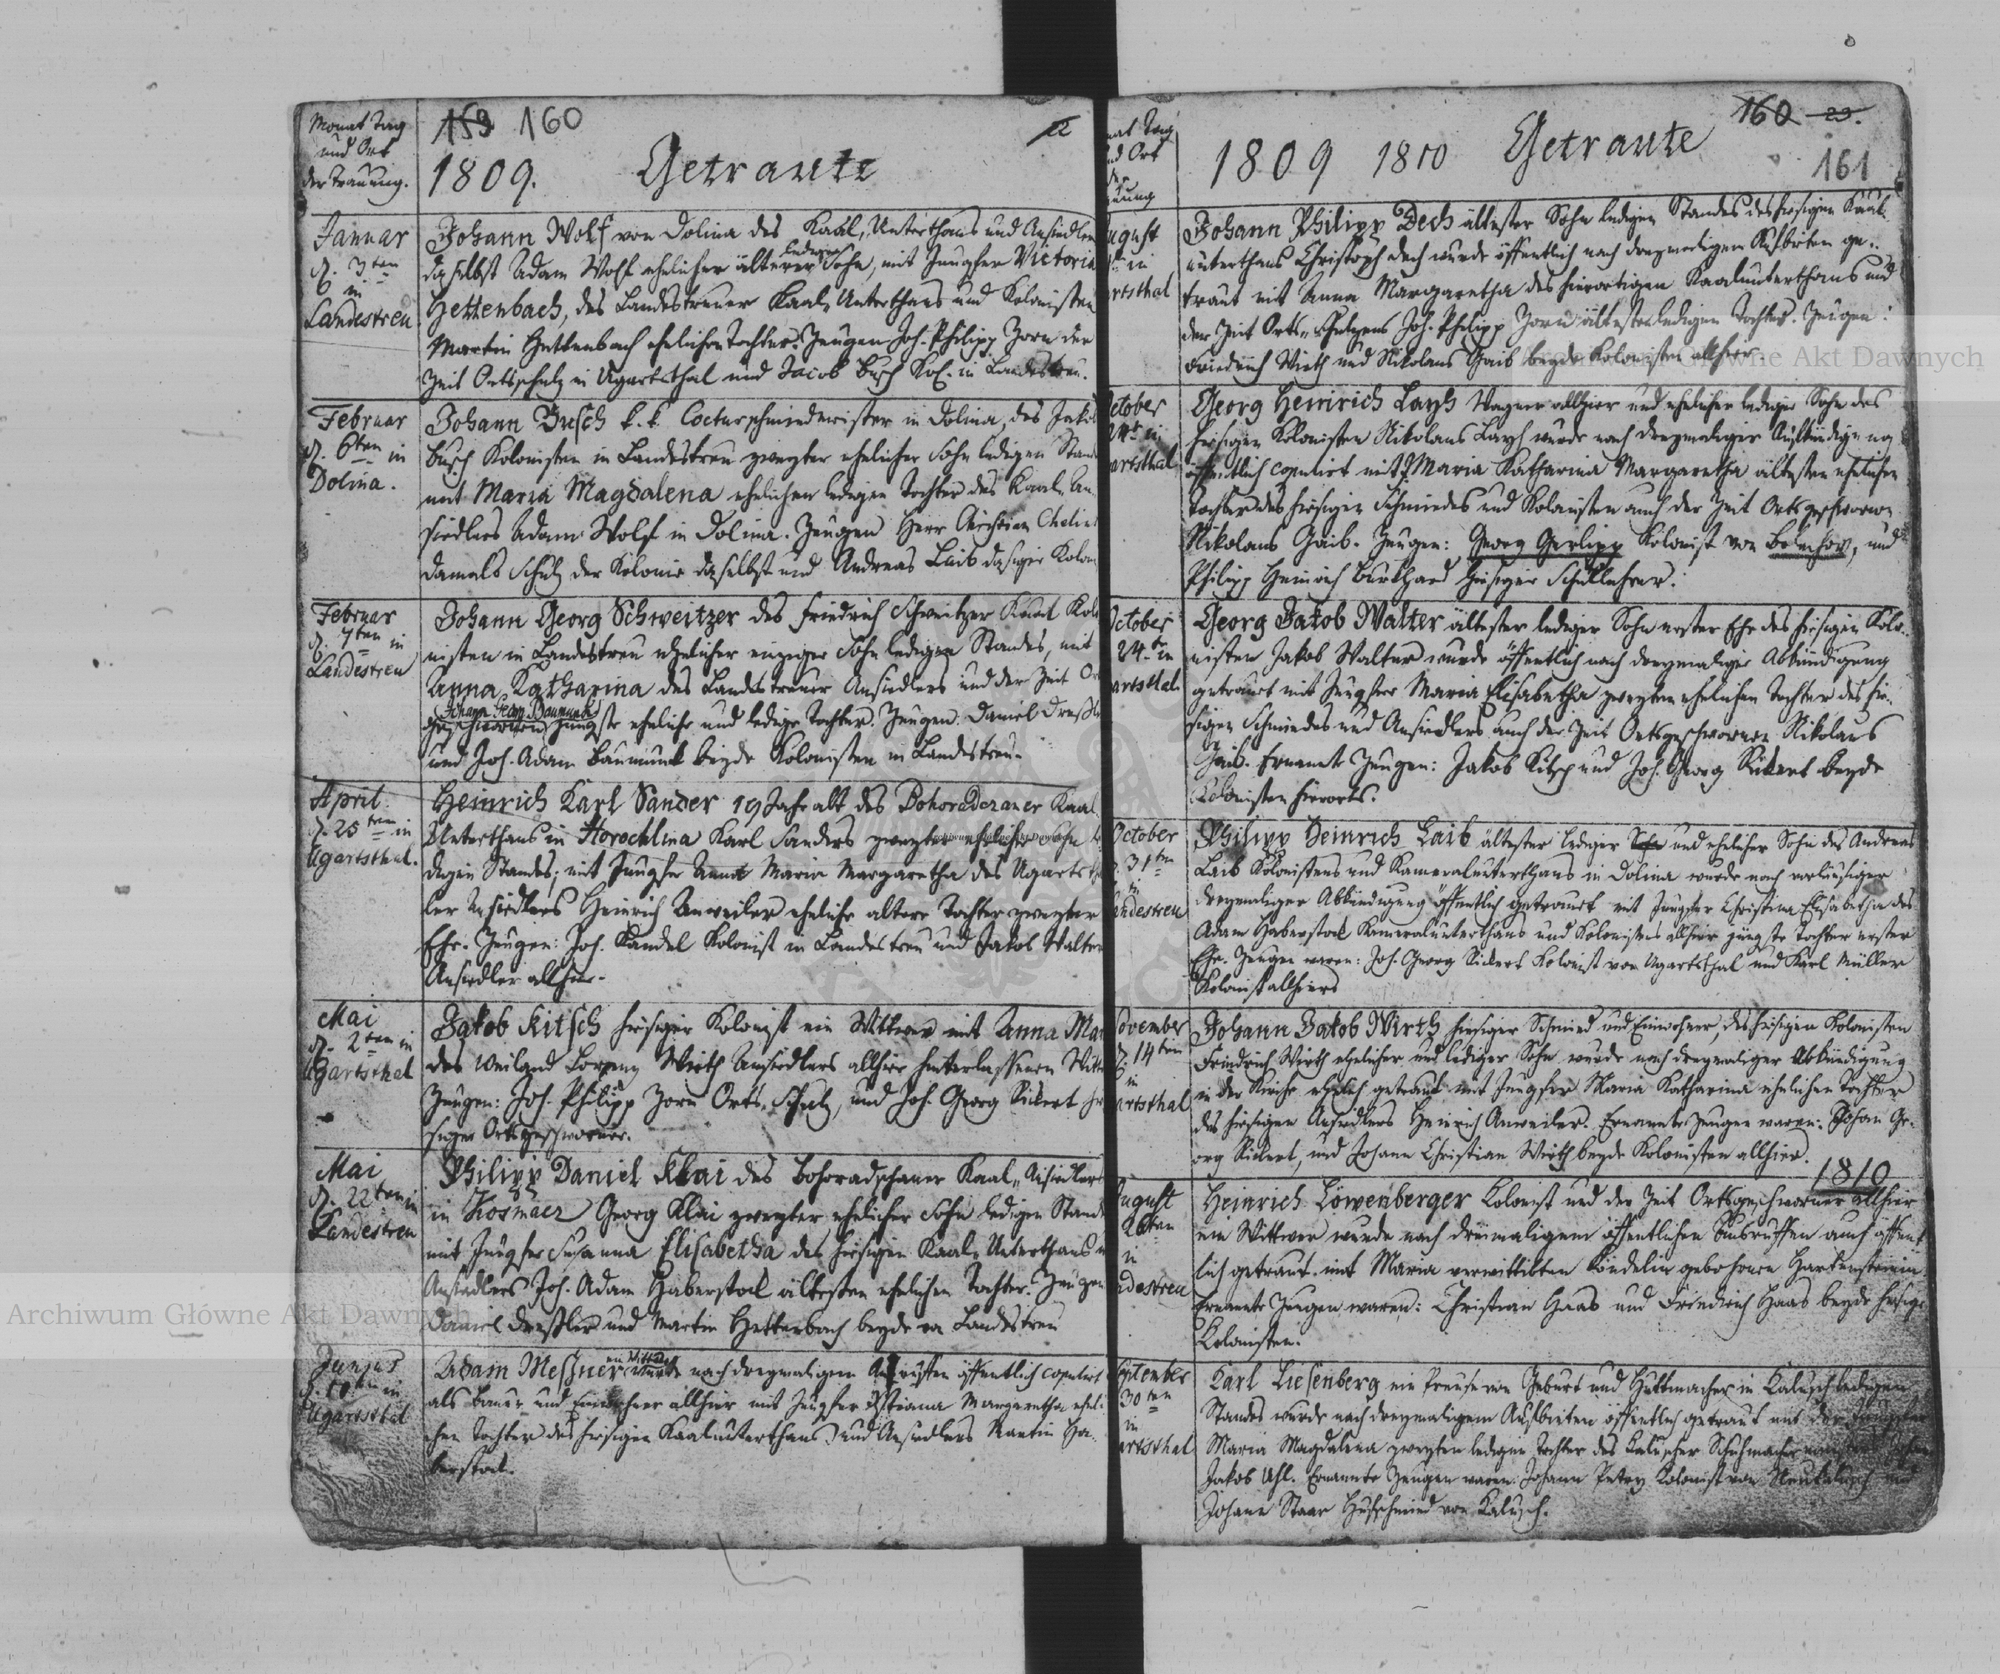 Monat Tag
und Ort
der Trauung.
159 160
22
1809. Getraute
Januar
d. 3ten
in
Landestreu
Johann Wolf von Dolina des Kaal. Unterthans und Ansiedlers
daselbst Adam Wolf ehelicher älterer lediger Sohn, mit Jungfer Victoria
Hettenbach, des Landestreuer Kaal. Unterthans und Kolonisten
Martin Hettenbach ehelichen Tochter. Zeugen Joh. Philipp Zorn der
Zeit Ortsschulz in Ugartsthal und Jacob Busch Kol. in Landestreu.
Februar
d. 6ten in
Dolina.
Johann Busch k. k. Cocturschmiedmeister in Dolina, des Jakob
Busch Kolonisten in Landestreu zweyter ehelicher Sohn ledigen Stan
mit Maria Magdalena ehelichen ledigen Tochter des Kaal. An-
siedlers Adam Wolf in Dolina. Zeugen Herr Christian
damals Schulz der Kolonie daselbst und Andreas Laib dasiger Kolon
Februar
d. 7ten in
Landestreu
Johann Georg Schweitzer des Friedrich Schweitzer Kaal Kolo
nisten in Landestreu ehelicher einziger Sohn ledigen Standes, mit
Anna Katharina des Landestreuer Ansiedlers und der Zeit Or
geschwornen Johann Georg Baumunk jüngste eheliche und ledige Tochter. Zeugen: Daniel Dreßle
und Joh. Adam Baumunk beyde Kolonisten in Landestreu.
April
d. 25ten in
Ugartsthal.
Heinrich Karl Sander 19 Jahr alt des Bohoradczaner Kaal
Unterthans in Horochlina Karl Sanders zweyter ehelicher Sohn le
digen Standes; mit Jungfer Anna Maria Margaretha des Ugartstha
ler Ansiedlers Heinrich Anweiler eheliche ältere Tochter zweyter
Ehe. Zeugen: Joh. Kandel Kolonist in Landestreu und Jakob Walter
Ansiedler allhier.
Mai
d. 2ten in
Ugartsthal
Jakob Kitsch hiesiger Kolonist ein Wittwer mit Anna Mar
des weiland Lorenz Wirth Ansiedlers allhier hinterlassenen Witt
Zeugen: Joh. Philipp Zorn Orts-Schulz, und Joh. Georg Rickert hie
siger Ortsgeschworner.
Mai
d. 22ten in
Landestreu
Philipp Daniel Klai des Bohoradschaner Kaal. Ansiedlers
in Kosmacz Georg Klai zweyter ehelicher Sohn ledigen Stande
mit Jungfer Susanna Elisabetha des hiesigen Kaal. Unterthans u
Ansiedlers Joh. Adam Haberstock ältesten ehelichen Tochter. Zeugen
Daniel Dreßler und Martin Hettenbach beyde in Landestreu
Junius
d. 10ten in
Ugartsthal
Adam Meßner ein Wittwer wurde nach dreymaligem Ausruffen öffentlich copulirt
als Bauer und Einwohner allhier mit Jungfer Christiana Margaretha eheli-
chen Tochter des hiesigen Kaalunterthans und Ansiedlers Martin Ha-
berstock.
nat Tag
nd Ort
der
auung
1809 1810 Getraute
160 23.
161
ugust
in
artsthal
Johann Philipp Dech ältester Sohn ledigen Standes des hiesigen Kaal-
unterthans Christoph Dech wurde öffentlich nach dreymaligem Aufbieten ge-
traut mit Anna Margaretha des hierortigen Kaalunterthans und
der Zeit Orts-Schulzens Joh. Philipp Zorn ältesten ledigen Tochter. Zeugen:
Friedrich Wirth und Nikolaus Gaib beyde Kolonisten allhier.
ctober
24t in
artsthal
Georg Heinrich Layh Wagner allhier und ehelicher lediger Sohn des
hiesigen Kolonisten Nikolaus Layh wurde nach dreymaliger Aufkündigung
öffentlich copulirt mit J. Maria Katharina Margaretha ältesten ehelichen
Tochter des hiesigen Schmiedes und Kolonisten auch der Zeit Ortsgeschwornen
Nikolaus Gaib. Zeugen: Georg Gerlipp Kolonist von Bolechow, und
Philipp Heinrich Burkhard hiesiger Schullehrer.
ctober
24t in
artsthal
Georg Jakob Walter ältester lediger Sohn erster Ehe des hiesigen Kolo-
nisten Jakob Walter wurde öffentlich nach dreymaliger Abkündigung
getraut mit Jungfer Maria Elisabetha zweyten ehelichen Tochter des hie-
sigen Schmiedes und Ansiedlers auch der Zeit Ortsgeschwornen Nikolaus
Gaib. Ernannte Zeugen: Jakob Kitsch und Joh. Georg Rickert beyde
Kolonisten hierorts.
October
31ten
in
andestreu
Philipp Heinrich Laib ältester lediger und ehelicher Sohn des Andreas
Laib Kolonistens und Kameralunterthans in Dolina wurde nach vorläufiger
dreymaliger Abkündigung öffentlich getraut mit Jungfer Christina Elisabetha des
Adam Haberstock Kameralunterthans und Kolonistens allhier jüngste Tochter erster
Ehe. Zeugen waren: Joh. Georg Rickert Kolonist von Ugartsthal und Karl Müller
Kolonist allhier
ovember
d. 14ten
in
artsthal
Johann Jakob Wirth hiesiger Schmied und Einwohner, des hiesigen Kolonisten
Friedrich Wirth ehelicher und lediger Sohn wurde nach dreymaliger Abkündigung
in der Kirche ehelich getraut mit Jungfer Maria Katharina ehelichen Tochter
des hiesigen Ansiedlers Heinrich Anweiler. Ernannte Zeugen waren: Johan Ge-
org Rickert, und Johann Christian Wirth beyde Kolonisten allhier.
1810
ugust
26ten
in
ndestreu
Heinrich Löwenberger Kolonist und der Zeit Ortsgeschworner allhier
ein Wittwer wurde nach dreimaligem öffentlichen Ausruffen auch öffent-
lich getraut mit Maria verwittibten Kündelin gebohrnen Hartensteinin
Ernannte Zeugen waren: Christian Haas und Friedrich Haas beyde hiesige
Kolonisten.
eptember
30ten
in
artsthal
Karl Liesenberg ein Preuse von Geburt und Huttmacher in Kalusch ledigen
Standes wurde nach dreymaligem Aufbieten öffentlich getraut mit der Jungfer
Maria Magdalena zweyten ledigen Tochter des Kaluscher Schuhmacher
Jakob Uhl. Ernannte Zeugen waren: Johann Petry Kolonist von Neukalusch und
Johann Staar Hufschmied von Kalusch.
Archiwum Główne Akt Dawnych
Archiwum Główne Akt Dawnych
Archiwum Główne Akt Dawnych